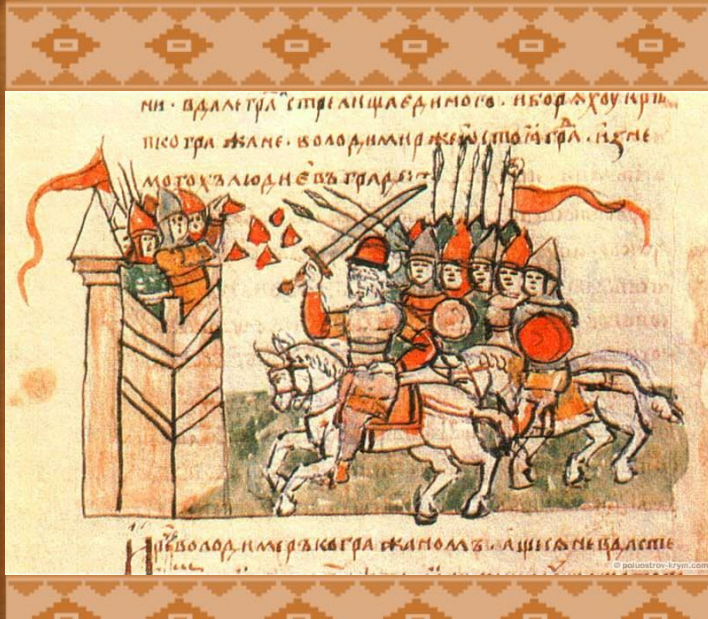 ни · вдале гра стрелища единого · и боряхоу крѣ
пко гражане · володимиръ же ѡстоѧ гра · изне
могохъ людие въ градѣ
И рⷱе володимеръ ко гражаномъ · аще ся не вдасте
© poluostrov-krym.com